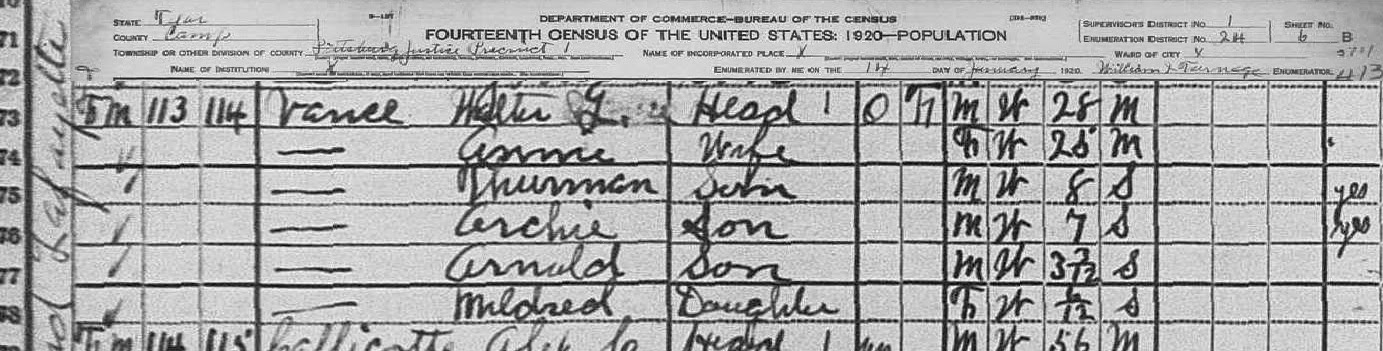 71
72
STATE Texas
COUNTY Camp
TOWNSHIP OR OTHER DIVISION OF COUNTY Pittsburg Justice Precinct 1
NAME OF INSTITUTION X
DEPARTMENT OF COMMERCE—BUREAU OF THE CENSUS
FOURTEENTH CENSUS OF THE UNITED STATES: 1920—POPULATION
NAME OF INCORPORATED PLACE X
ENUMERATED BY ME ON THE 14 DAY OF January 1920. William Turnage ENUMERATOR
SUPERVISOR'S DISTRICT NO. 1 SHEET NO.
ENUMERATION DISTRICT NO. 24 6 B
WARD OF CITY X
Lafayette
73 Fm 113 114 Vance Walter G. Head 1 O F M W 28 M
74 — Annie Wife F W 25 M
75 — Thurman Son M W 8 S yes
76 — Archie Son M W 7 S yes
77 — Arnold Son M W 3 3/12 S
78 — Mildred Daughter F W /12 S
Fm 114 115 Head 1 M W 56 M